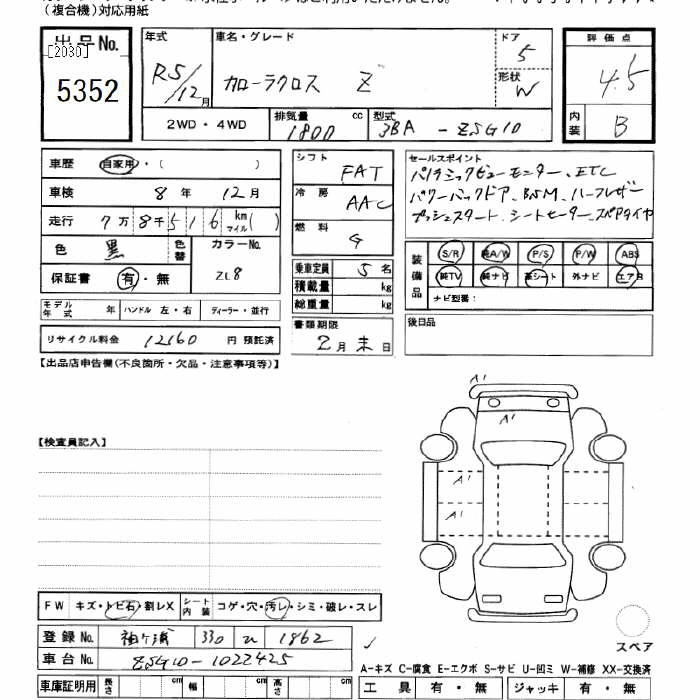 (複合機)対応用紙
出品No.
[2030]
5352
年式
R5/12月
車名・グレード
カローラクロス Z
ドア
5
形状
W
評価点
4.5
内装
B
2WD・4WD
排気量
1800 cc
型式
3BA - ZSG10
車歴 自家用・( )
車検 8年 12月
走行 7万8千516 km マイル( )
色 黒 色替 カラーNo. 2L8
保証書 有・無
モデル年式 年 ハンドル 左・右 ディーラー・並行
リサイクル料金 12160 円 預託済
シフト FAT
冷房 AAC
燃料 G
乗車定員 5名
積載量 kg
総重量 kg
書類期限
2月末日
セールスポイント
パノラミックビューモニター、ETC
パワーバックドア、BSM、ハーフレザー
プッシュスタート、シートヒーター、スペアタイヤ
装備品
S/R 純A/W P/S P/W ABS
純TV 純ナビ 革シート 外ナビ エアB
ナビ型番:
後日品
【出品店申告欄(不良箇所・欠品・注意事項等)】
【検査員記入】
A1
A1
A1
A1
FW キズ・トビ石・割レX シート内装 コゲ・穴・汚レ・シミ・破レ・スレ
登録No. 袖ヶ浦 330 1862
車台No. ZSG10-1022425
スペア
A-キズ C-腐食 E-エクボ S-サビ U-凹ミ W-補修 XX-交換済
車庫証明用 長さ cm 幅 cm 高さ cm
工具 有・無 ジャッキ 有・無